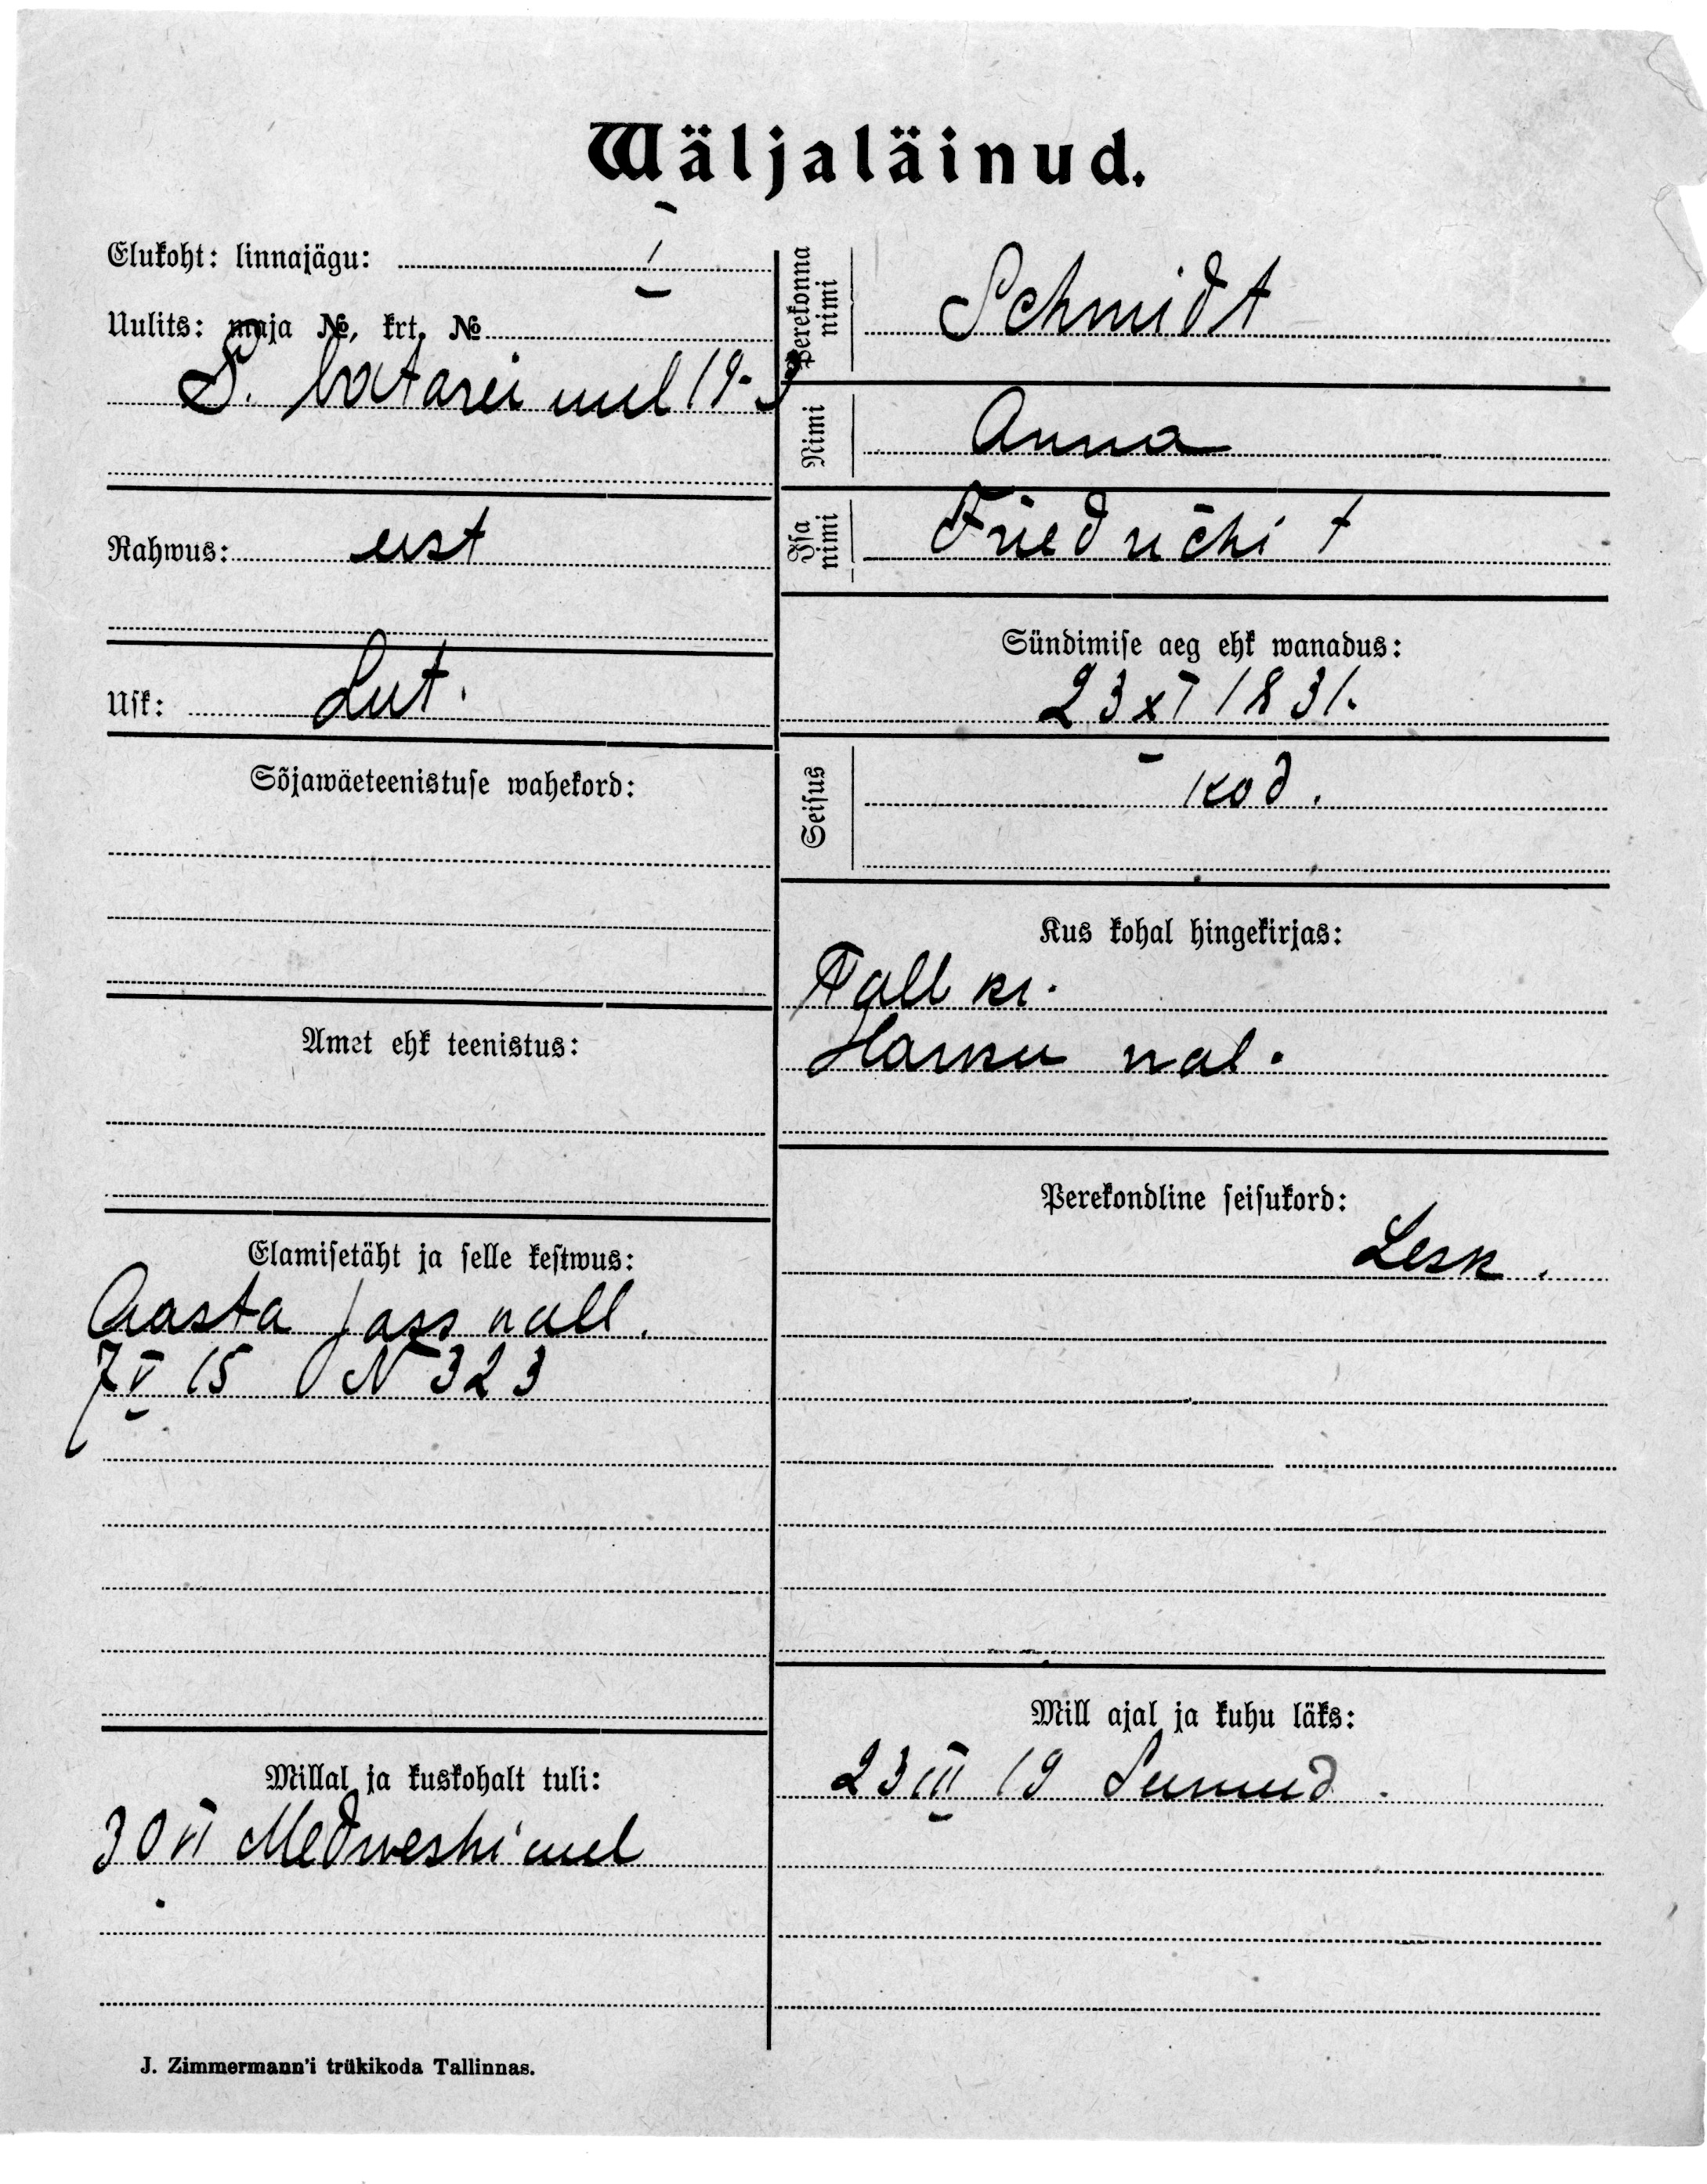 Wäljaläinud.
Elukoht: linnajägu: I
Uulits: maja №, krt. №
S. batarei uul 19-3
Rahwus: eest
Usk: Lut.
Sõjawäeteenistuse wahekord:
Amet ehk teenistus:
Elamisetäht ja selle kestwus:
Aasta pass wall.
7 V 15 N 323
Millal ja kuskohalt tuli:
30 VI Medweshi uul
Perekonna nimi Schmidt
Nimi Anna
Isa nimi Friedrichi t
Sündimise aeg ehk wanadus:
23 XI 1831.
Seisus kod.
Kus kohal hingekirjas:
Tall kr.
Harku wal.
Perekondline seisukord:
Lesk.
Mill ajal ja kuhu läks:
23 III 19 Surnud.
J. Zimmermann'i trükikoda Tallinnas.